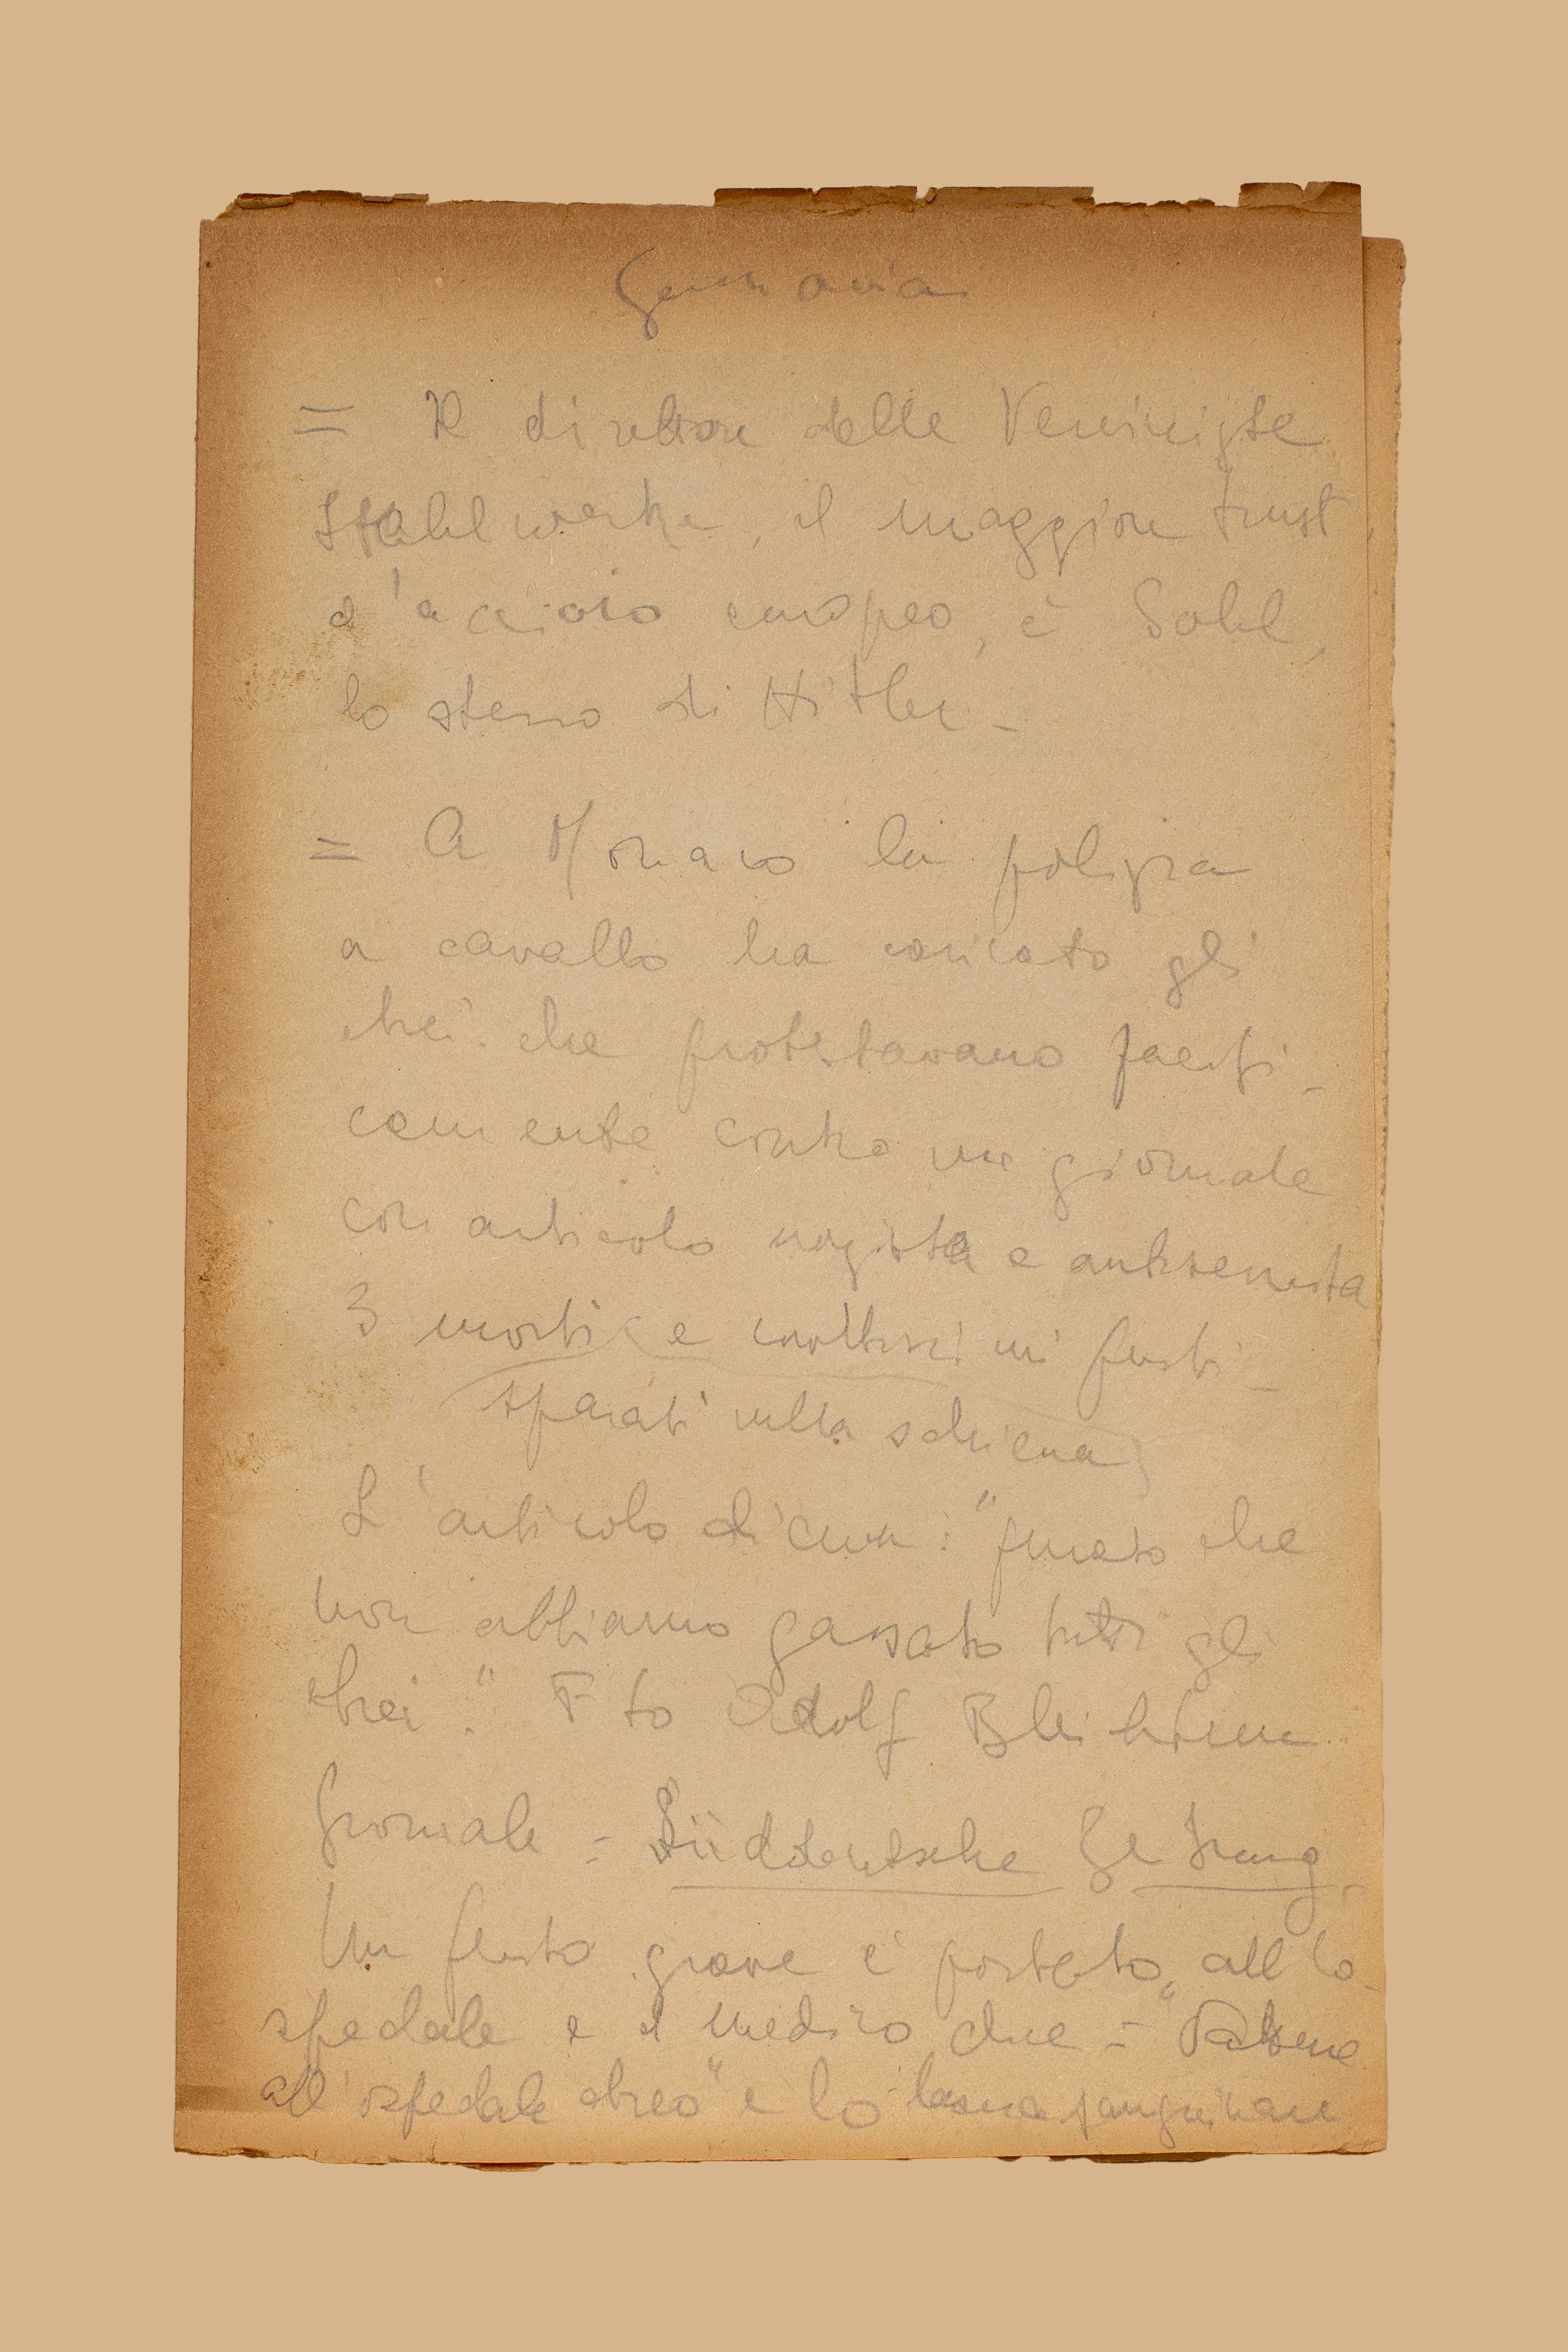 Germania
= Il direttore delle Vereinigte
Stahlwerke, il maggiore trust
d'acciaio europeo, è Sohl,
lo stesso di Hitler -
= A Monaco la polizia
a cavallo ha caricato gli
ebrei che protestavano pacifi-
camente contro un giornale
con articolo nazista e antisemita
3 morti e moltissimi feriti -
(sparati sulla schiena)
L'articolo diceva: "peccato che
non abbiamo gassato tutti gli
ebrei." Fto Adolf
Giornale = Süddeutsche Zeitung -
Un ferito grave è portato all'o-
spedale e il medico dice = "Portatene
all'ospedale ebreo" e lo lascia sanguinare